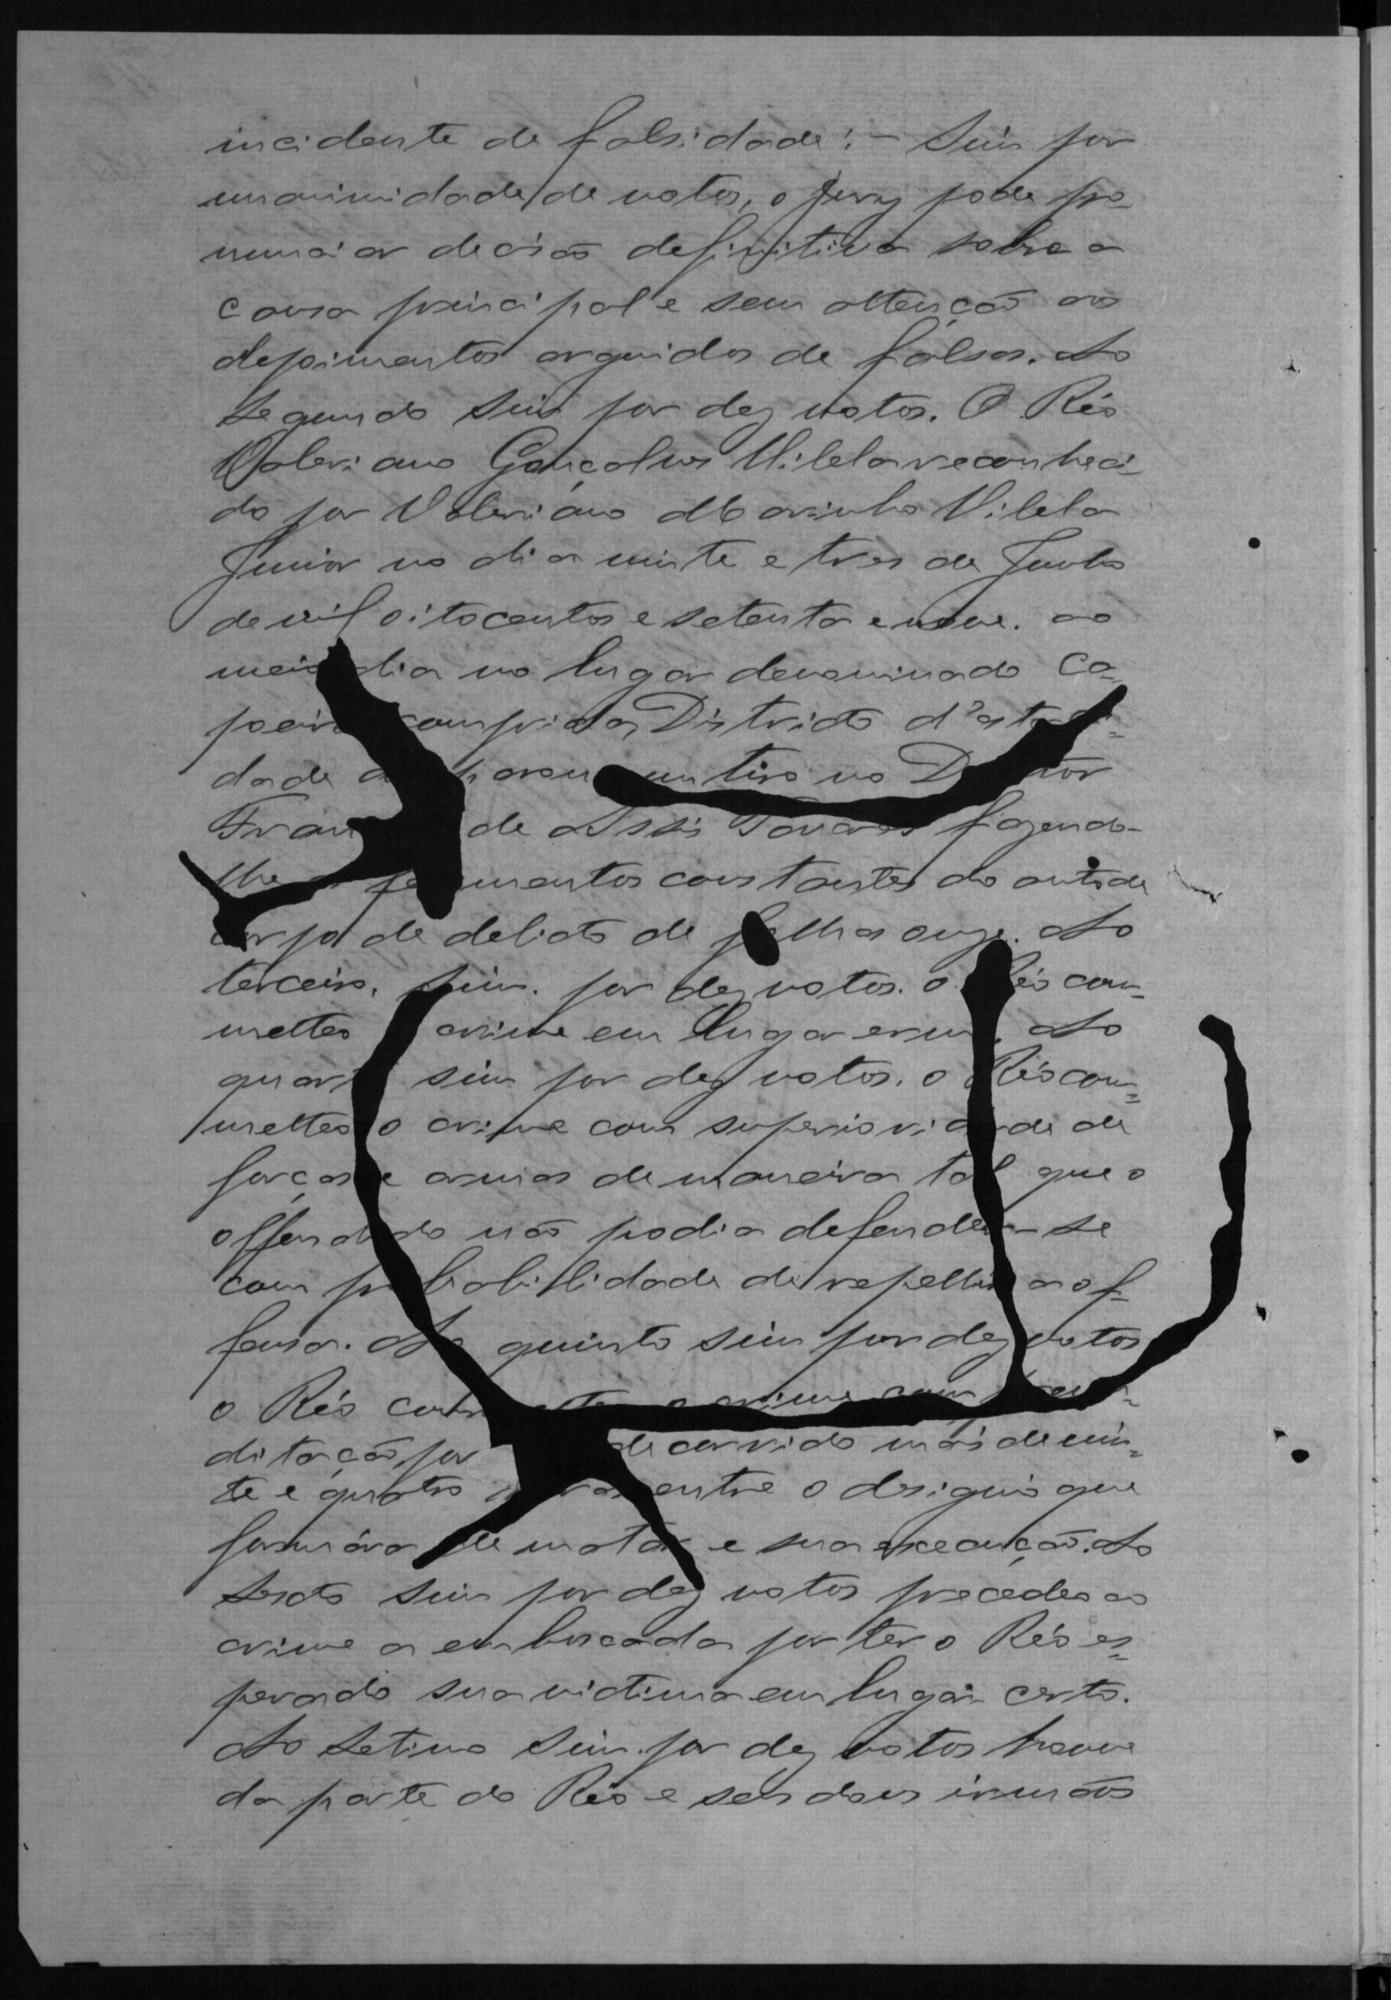 incidente de falsidade: – Sim por
unanimidade de votos, o Jury pode pro-
nunciar decisão definitiva sobre a
causa principal e sem attenção aos
depoimentos arguidos de falsos. Ao
Segundo Sim por dez votos. O Réo
Valeriano Gonçalves Vilela reconheci-
do por Valeriano Marinho Vilela
Junior no dia vinte e tres de Junho
de mil oitocentos e setenta e nove. ao
meio dia no lugar denominado Ca-
comprida, Districto d'esta
dade um tiro no
de Assis Tavares fazendo-
lhe constantes do auto de
corpo de delicto de folhas onze. Ao
terceiro, Sim. por dez votos. o Réo com-
metteo crime em lugar ermo. Ao
quarto sim por dez votos. o Réo com-
metteo o crime com superioridade de
forças e armas de maneira tal que o
offendido não podia defender-se
com probabilidade de repellir a of-
fensa. Ao quinto sim por dez votos
o Réo o crime com
ditação, por decorrido mais de vin-
te e quatro horas entre o designio que
formára de matar e sua execução. Ao
Sexto sim por dez votos precedeo ao
crime a emboscada por ter o Réo es-
perado sua victima em lugar certo.
Ao Setimo Sim. por dez votos houve
da parte do Réo e seus dois irmãos